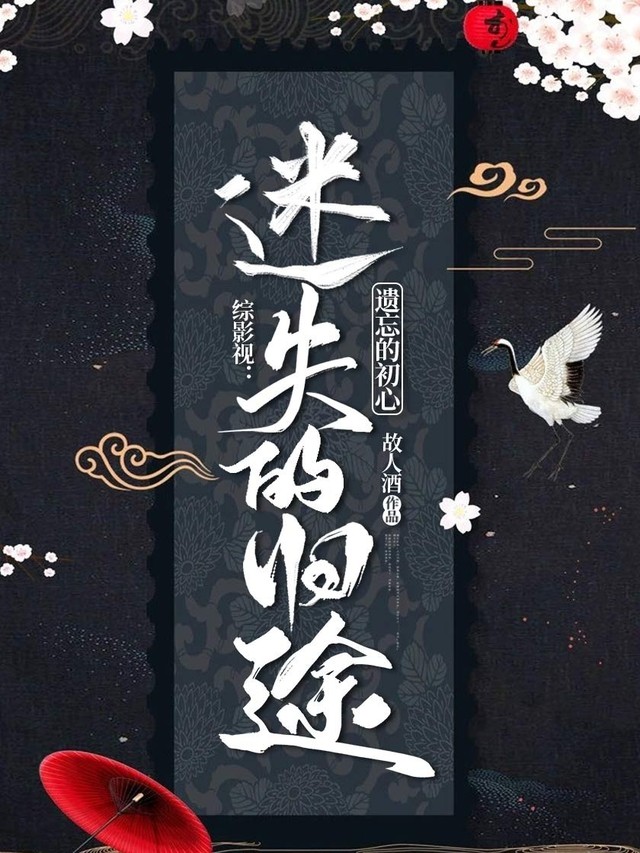 综影视：
迷失的归途
遗忘的初心
故人酒 作品